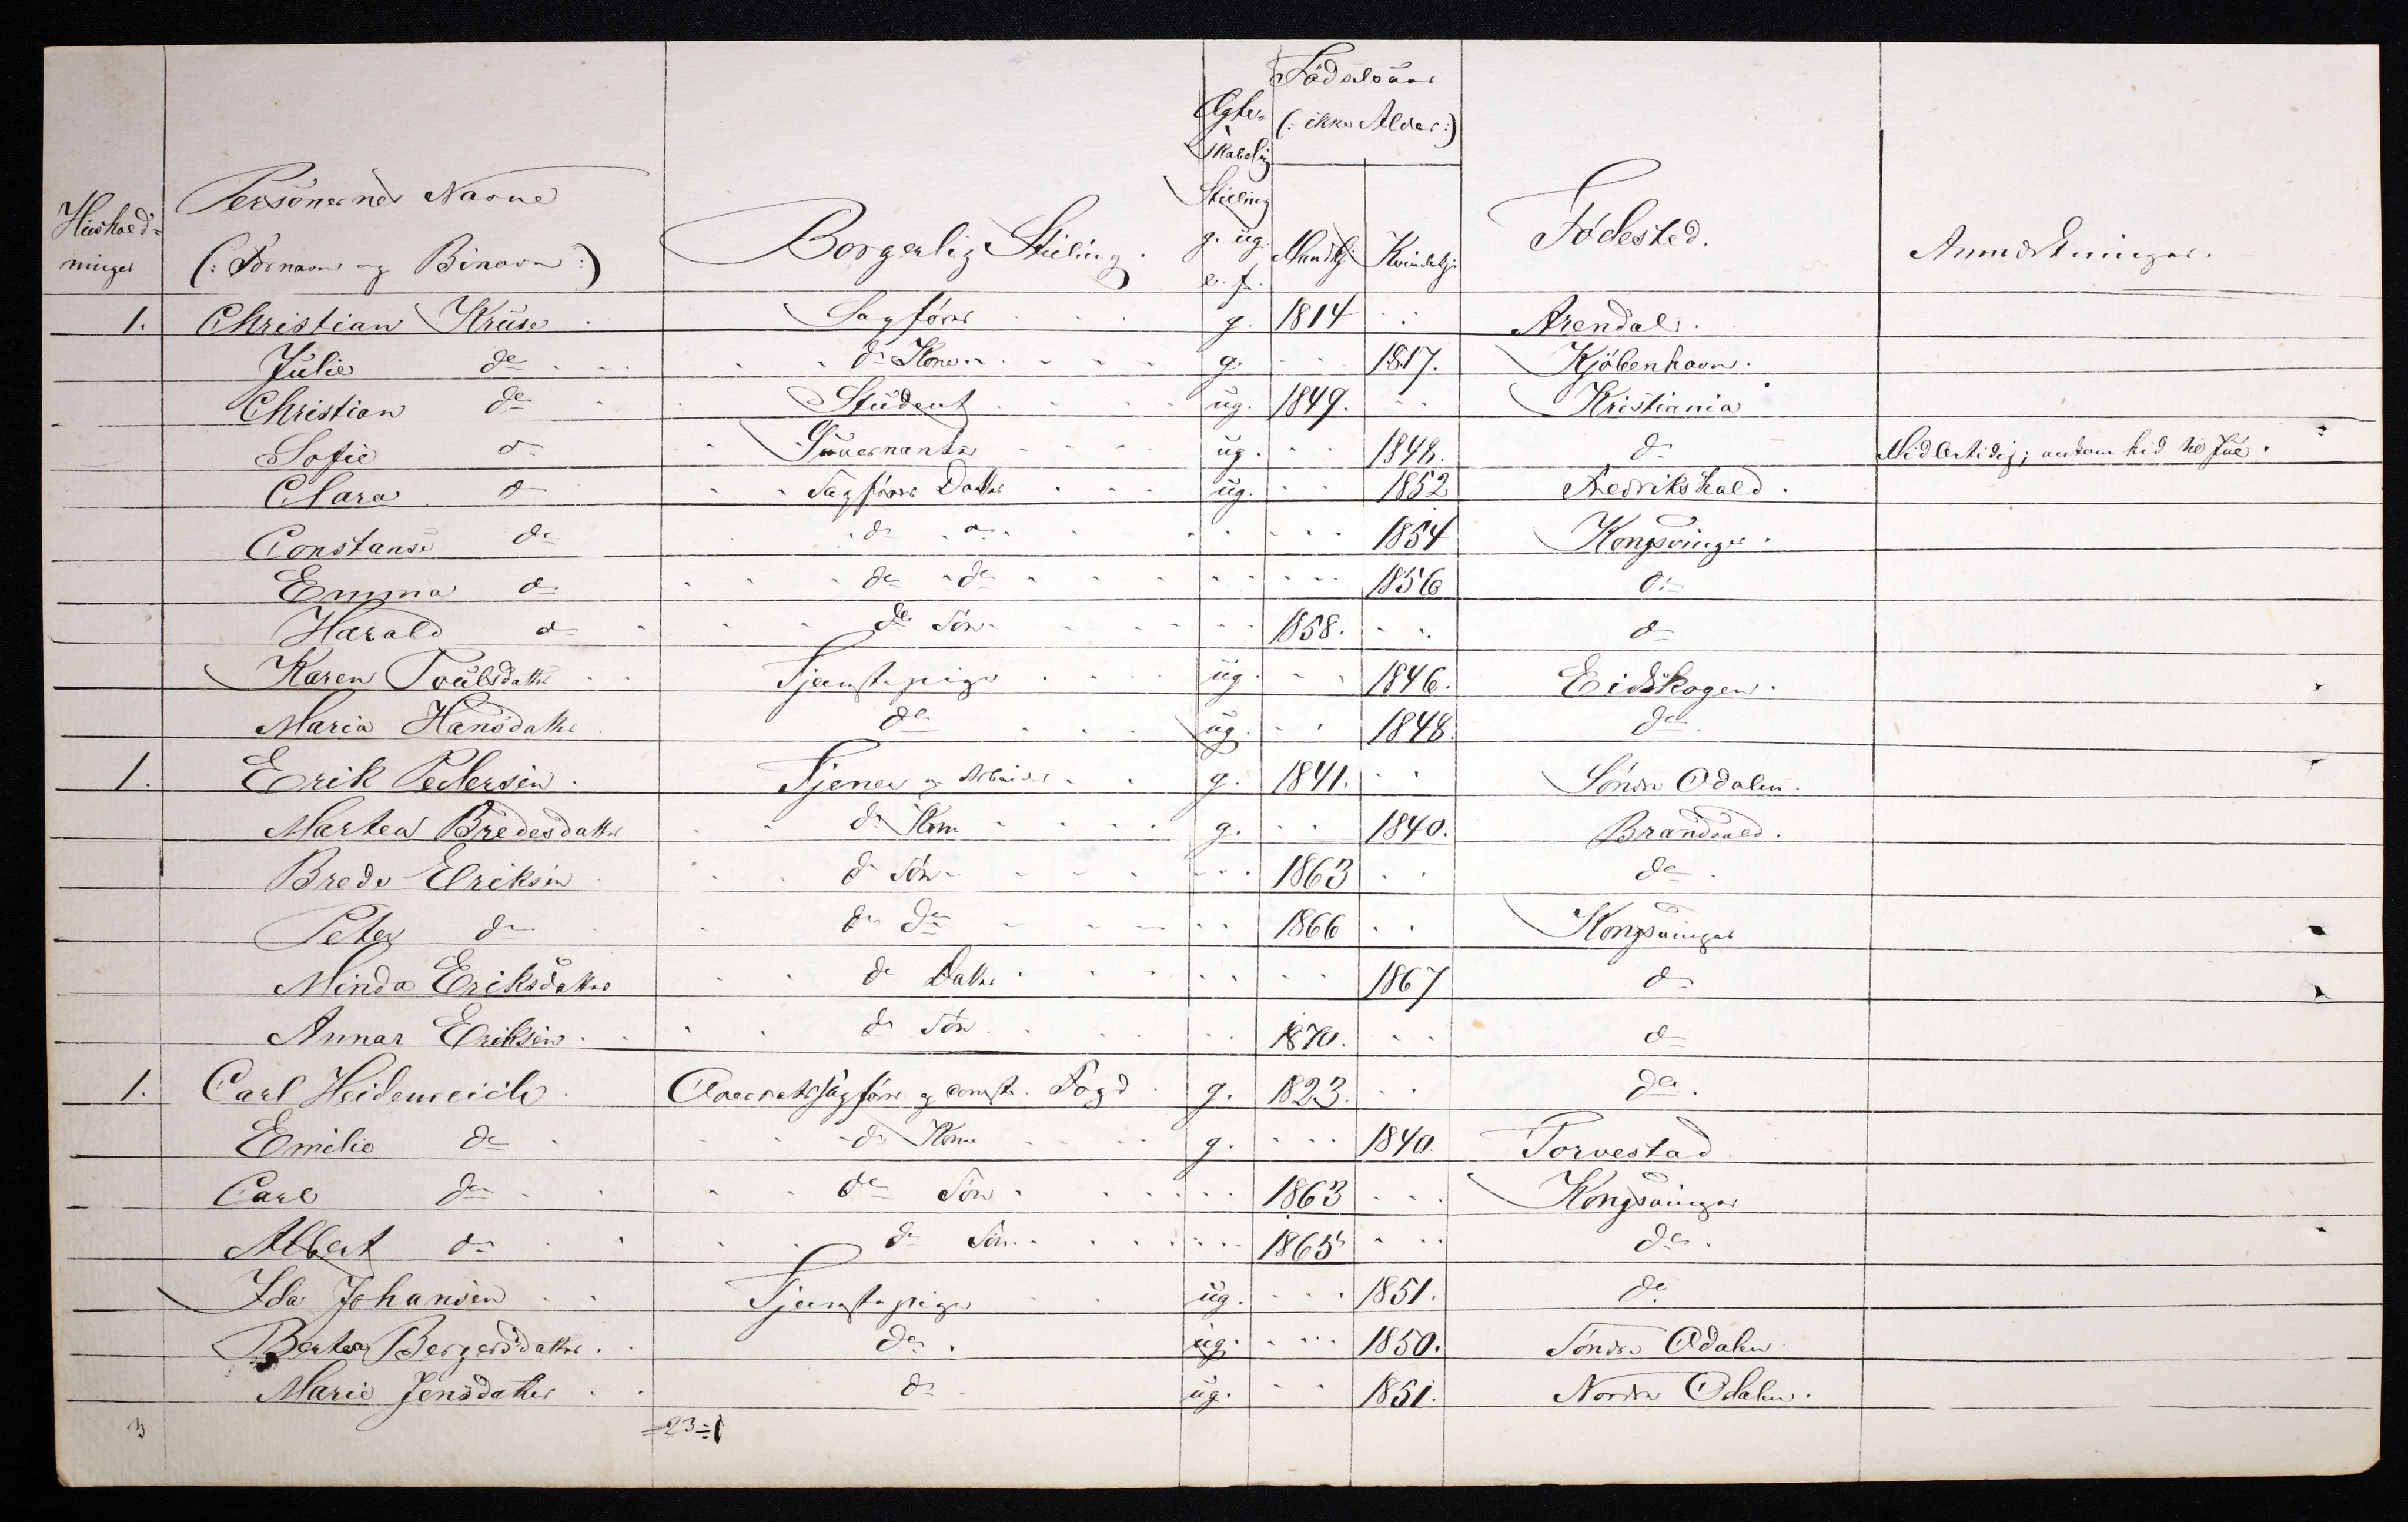 Hushold-
ninger
Personernes Navne
(: Fornavn og Binavn :)
Borgerlig Stilling.
Egte-
skabelig
Stilling
g. ug.
e. f.
Fødselsaar
(: ikke Alder :)
Mandkj.
Kvindekj.
Fødested.
Anmærkninger.
1. Christian Kruse . Sagfører g. 1814 Arendal.
Julie do do Kone g. 1817. Kjöbenhavn.
Christian do Student ug. 1849. Kristiania
Sofie do Guvernante ug. 1848. do Midlertidig; ankom hid til Jul.
Clara do Sagførers Datter ug. 1852 Fredrikshald.
Constanse do do do 1854 Kongsvinger.
Emma do do do 1856 do
Harald do do Søn 1858. do
Karen Poulsdatter Tjenestepige ug. 1846. Eidskogen.
Maria Hansdatter do ug. 1848. do
1. Erik Pedersen. Tjener og Arbeider g. 1841. Söndre Odalen.
Martea Bredesdatter do Kone g. 1840. Brandvald.
Brede Eriksen do Søn 1863 do
Peter do do do 1866 Kongsvinger
Minda Eriksdatter do Datter 1867 do
Annar Eriksen do Søn 1870. do
1. Carl Heidenreich. Overretssagfører og const. Foged g. 1823. do
Emilie do do Kone g. 1840. Torvestad
Carl do do Søn 1863 Kongsvinger
Albert do do Søn 1865 do
Ida Johansen Tjenestepige ug. 1851. do
Bertea Bergersdatter. do. ug. 1850. Söndre Odalen
Marie Jensdatter do ug. 1851. Nordre Odalen.
3 =23÷1